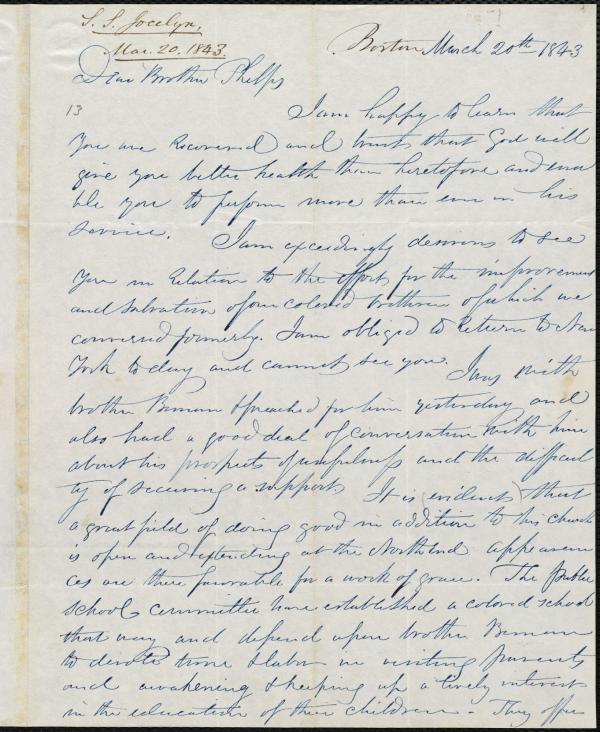 S. S. Jocelyn,
Mar. 20. 1843
Boston March 20th 1843
Dear Brother Phelps
13
I am happy to learn that
you are Recovered and trust that God will
give you better health than heretofore and ena
ble you to perform more than ever in his
service. I am exceedingly desirous to see
you in Relation to the efforts for the improvement
and salvation of our colored brethren of which we
conversed formerly. I am obliged to Return to New
York to day and cannot see you. I was with
brother Beman & preached for him yesterday and
also had a good deal of conversation with him
about his prospects of usefulness and the difficul
ty of securing a support. It is evident that
a great field of doing good in addition to his church
is open and extending at the North end appearan
ces are there favorable for a work of grace. The public
school committee have established a colored school
that way and depend upon brother Beman
to devote time & labor in visiting parents
and awakening & keeping up a lively interest
in the education of their children - They offer